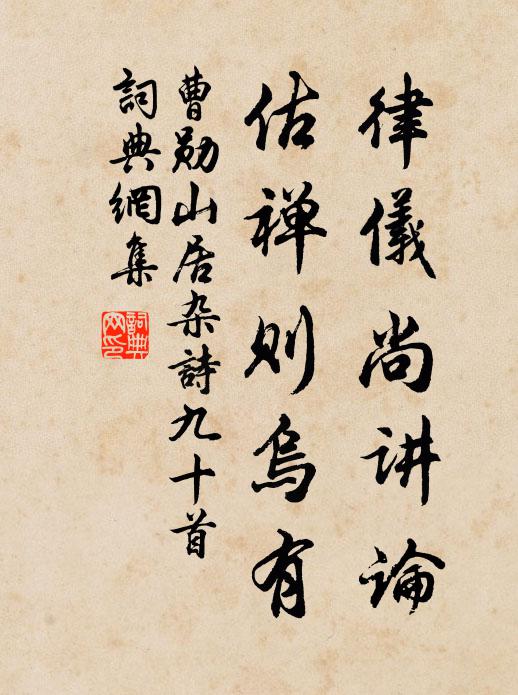 律儀尚讲論
估禅则烏有
曹勋山居杂詩九十首
詞典網集
詞典